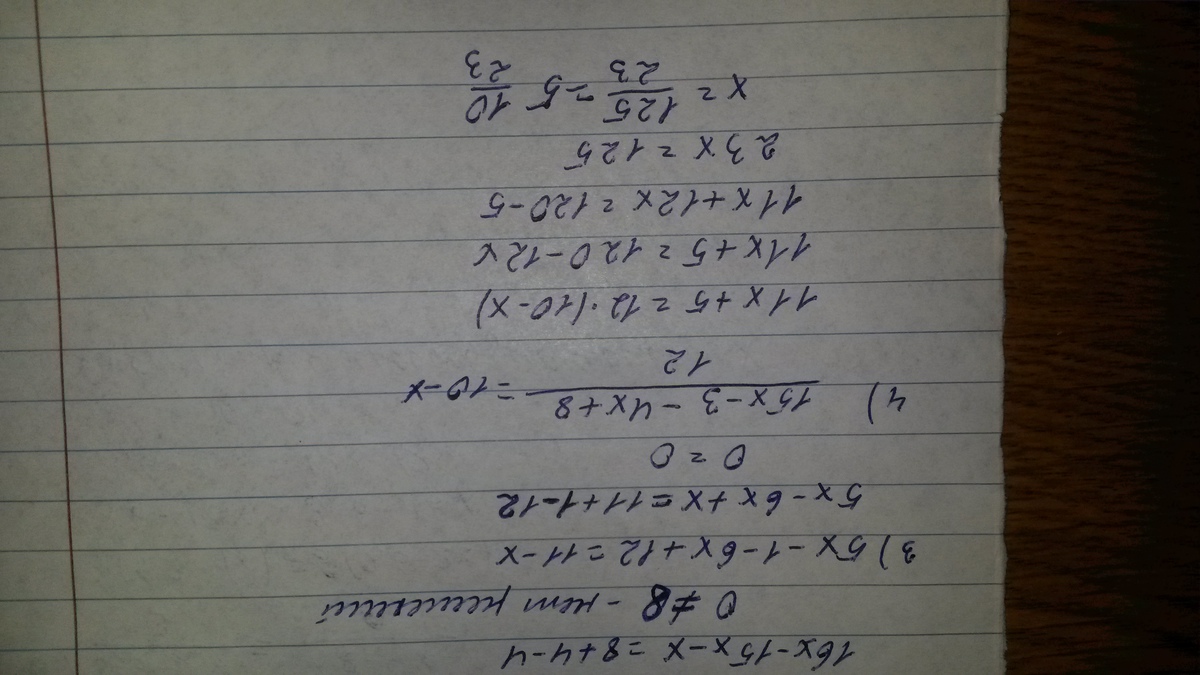 16x-15x-x=8+4-4
0≠8 - нет решений
3) 5x-1-6x+12=11-x
5x-6x+x=11+1-12
0=0
4) \frac{15x-3-4x+8}{12}=10-x
11x+5=12·(10-x)
11x+5=120-12x
11x+12x=120-5
23x=125
x=\frac{125}{23}=5\frac{10}{23}